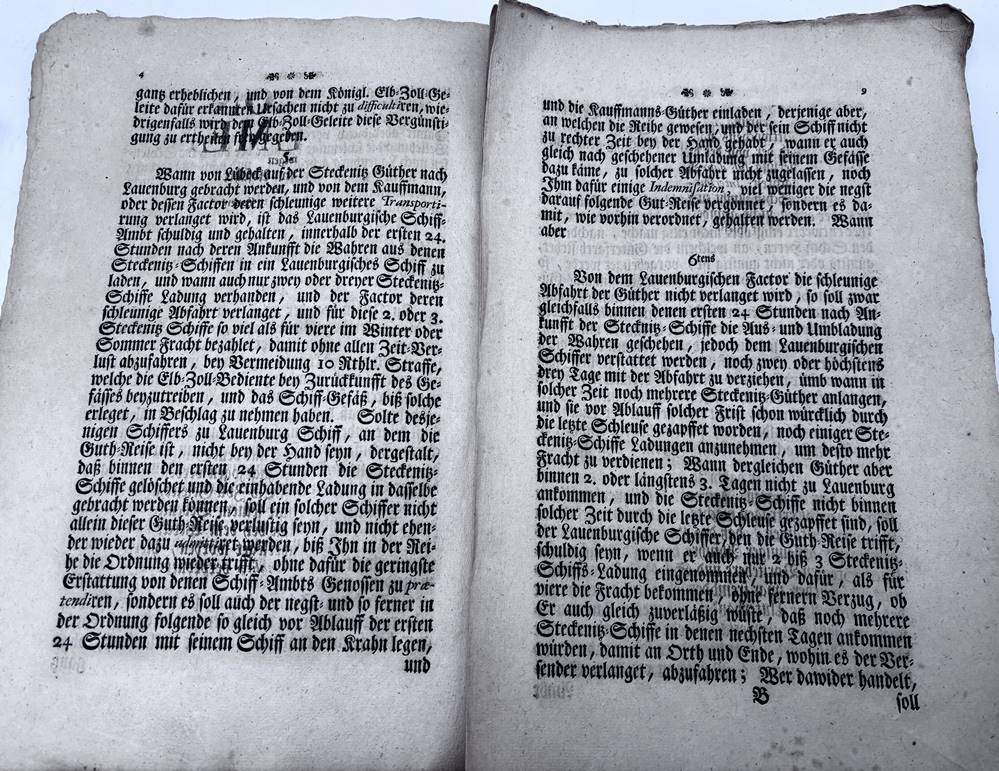 4
gantz erheblichen, und von dem Königl. Elb-Zoll-Ge-
leite dafür erkannten Ursachen nicht zu difficultiren, wie-
drigenfalls wird dem Elb-Zoll-Geleite diese Vergünsti-
gung zu ertheilen frey gegeben.
Wann von Lübeck auf der Steckenitz Güther nach
Lauenburg gebracht werden, und von dem Kauffmann,
oder dessen Factor deren schleunige weitere Transporti-
rung verlanget wird, ist das Lauenburgische Schiff-
Ambt schuldig und gehalten, innerhalb der ersten 24.
Stunden nach deren Ankunfft die Wahren aus denen
Steckenitz-Schiffen in ein Lauenburgisches Schiff zu
laden, und wann auch nur zwey oder dreyer Steckenitz-
Schiffe Ladung verhanden, und der Factor deren
schleunige Abfahrt verlanget, und für diese 2. oder 3.
Steckenitz Schiffe so viel als für viere im Winter oder
Sommer Fracht bezahlet, damit ohne allen Zeit-Ver-
lust abzufahren, bey Vermeidung 10 Rthlr. Straffe,
welche die Elb-Zoll-Bediente bey Zurückkunfft des Ge-
fässes beyzutreiben, und das Schiff-Gefäß, biß solche
erleget, in Beschlag zu nehmen haben. Solte desje-
nigen Schiffers zu Lauenburg Schiff, an dem die
Guth-Reise ist, nicht bey der Hand seyn, dergestalt,
daß binnen den ersten 24 Stunden die Steckenitz-
Schiffe gelöschet und die einhabende Ladung in dasselbe
gebracht werden können, soll ein solcher Schiffer nicht
allein dieser Guth-Reise verlustig seyn, und nicht ehen-
der wieder dazu admittiret werden, biß Ihn in der Rei-
he die Ordnung wieder trifft, ohne dafür die geringste
Erstattung von denen Schiff-Ambts Genossen zu præ-
tendiren, sondern es soll auch der negst- und so ferner in
der Ordnung folgende so gleich vor Ablauff der ersten
24 Stunden mit seinem Schiff an den Krahn legen,
und
9
und die Kauffmanns-Güther einladen, derjenige aber,
an welchen die Reihe gewesen, und der sein Schiff nicht
zu rechter Zeit bey der Hand gehabt, wann er auch
gleich nach geschehener Umladung mit seinem Gefässe
dazu käme, zu solcher Abfahrt nicht zugelassen, noch
Ihm dafür einige Indemnisation, viel weniger die negst
darauf folgende Gut-Reise vergönnet, sondern es da-
mit, wie vorhin verordnet, gehalten werden. Wann
aber
6tens
Von dem Lauenburgischen Factor die schleunige
Abfahrt der Güther nicht verlanget wird, so soll zwar
gleichfalls binnen denen ersten 24 Stunden nach An-
kunfft der Stecknitz-Schiffe die Aus- und Umbladung
der Wahren geschehen, jedoch dem Lauenburgischen
Schiffer verstattet werden, noch zwey oder höchstens
drey Tage mit der Abfahrt zu verziehen, ümb wann in
solcher Zeit noch mehrere Steckenitz-Güther anlangen,
und sie vor Ablauff solcher Frist schon würcklich durch
die letzte Schleuse gezapffet worden, noch einiger Ste-
ckenitz-Schiffe Ladungen anzunehmen, um desto mehr
Fracht zu verdienen; Wann dergleichen Güther aber
binnen 2. oder längstens 3. Tagen nicht zu Lauenburg
ankommen, und die Steckenitz-Schiffe nicht binnen
solcher Zeit durch die letzte Schleuse gezapffet sind, soll
der Lauenburgische Schiffer, den die Guth-Reise trifft,
schuldig seyn, wenn er auch nur 2 biß 3 Steckenitz-
Schiffs-Ladung eingenommen, und dafür, als für
viere die Fracht bekommen, ohne fernern Verzug, ob
Er auch gleich zuverläßig wüste, daß noch mehrere
Steckenitz-Schiffe in denen nechsten Tagen ankommen
würden, damit an Orth und Ende, wohin es der Ver-
sender verlanget, abzufahren; Wer dawider handelt,
B
soll